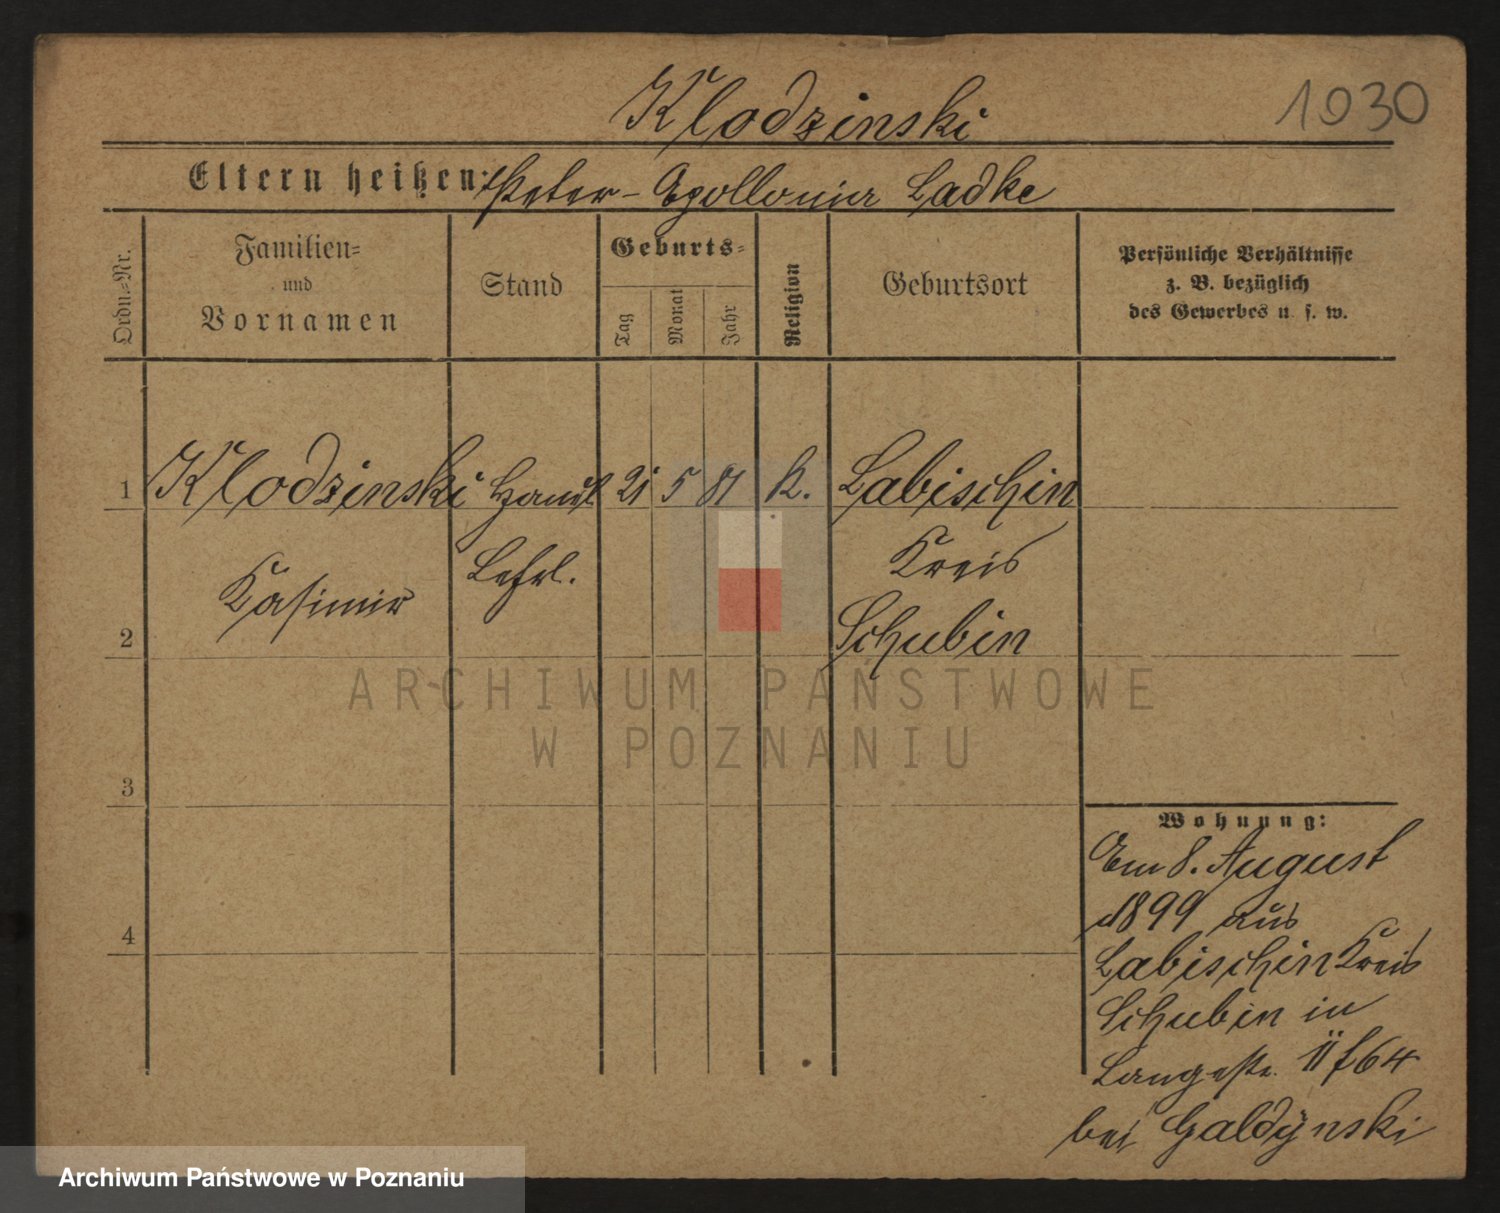 Klodzinski
1030
Eltern heißen: Peter - Apollonia Ladke
Ordn.-Nr.
Familien-
und
Vornamen
Stand
Geburts-
Tag
Monat
Jahr
Religion
Geburtsort
Persönliche Verhältnisse
z. B. bezüglich
des Gewerbes u. s. w.
1 Klodzinski Handl 21 5 81 k. Labischin
Kreis
Kasimir Lehrl.
2 Schubin
ARCHIWUM PAŃSTWOWE
W POZNANIU
3
Wohnung:
Am 8. August
1899 aus
4 Labischin Kreis
Schubin in
Langestr. 11 64
bei Galdynski
Archiwum Państwowe w Poznaniu